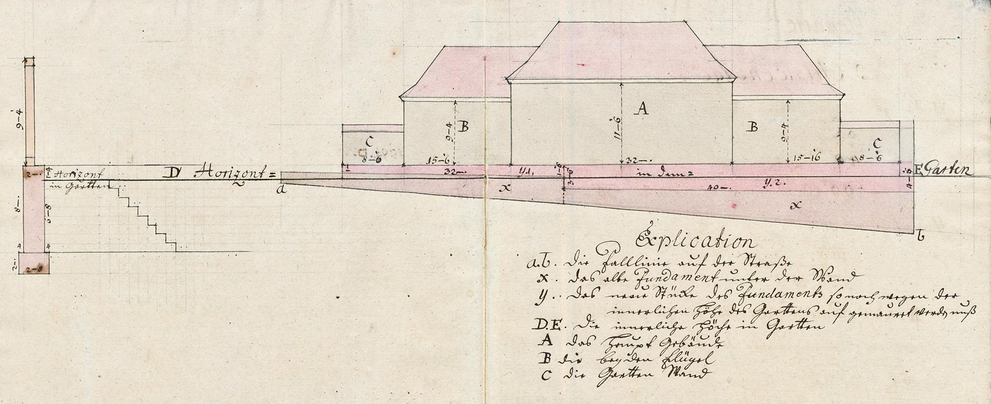 A
B
B
C
9-4
9-4
9-4
11-6
15-6
32-
15-16
18-6
2-
Horizont
in Gartten
D Horizont =
32-
y1.
in dem =
E Garten
a
x
40-.
y.2.
x
b
8-
5-8
2-
2-8
Explication
a.b. die Falllinie auf der Straße
x. das alte Fundament unter der Wand
y.. das neue Stücke des Fundaments so noch wegen der
innerlichen Höhe des Garttens auf gemauert werden muß
D.E. die innerliche Höhe in Gartten
A das Haupt Gebäude
B die beyden Flügel
C die Gartten Wand